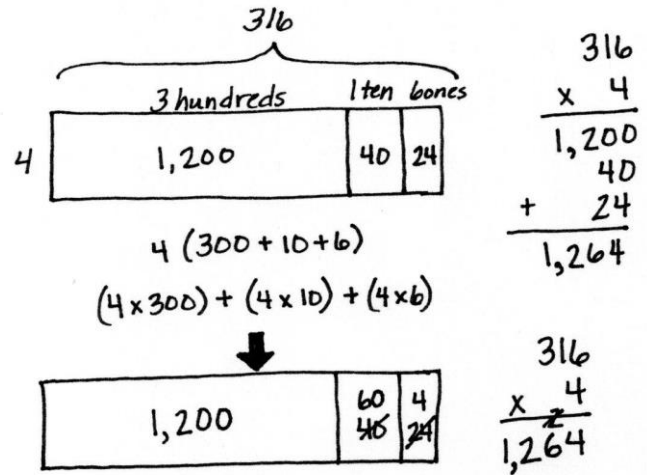 316
3 hundreds 1 ten 6 ones
4 1,200 40 24
4 (300 + 10 + 6)
(4 x 300) + (4 x 10) + (4 x 6)
1,200 60 4
40 24
316
x 4
1,200
40
+ 24
1,264
316
x 4
2
1,264